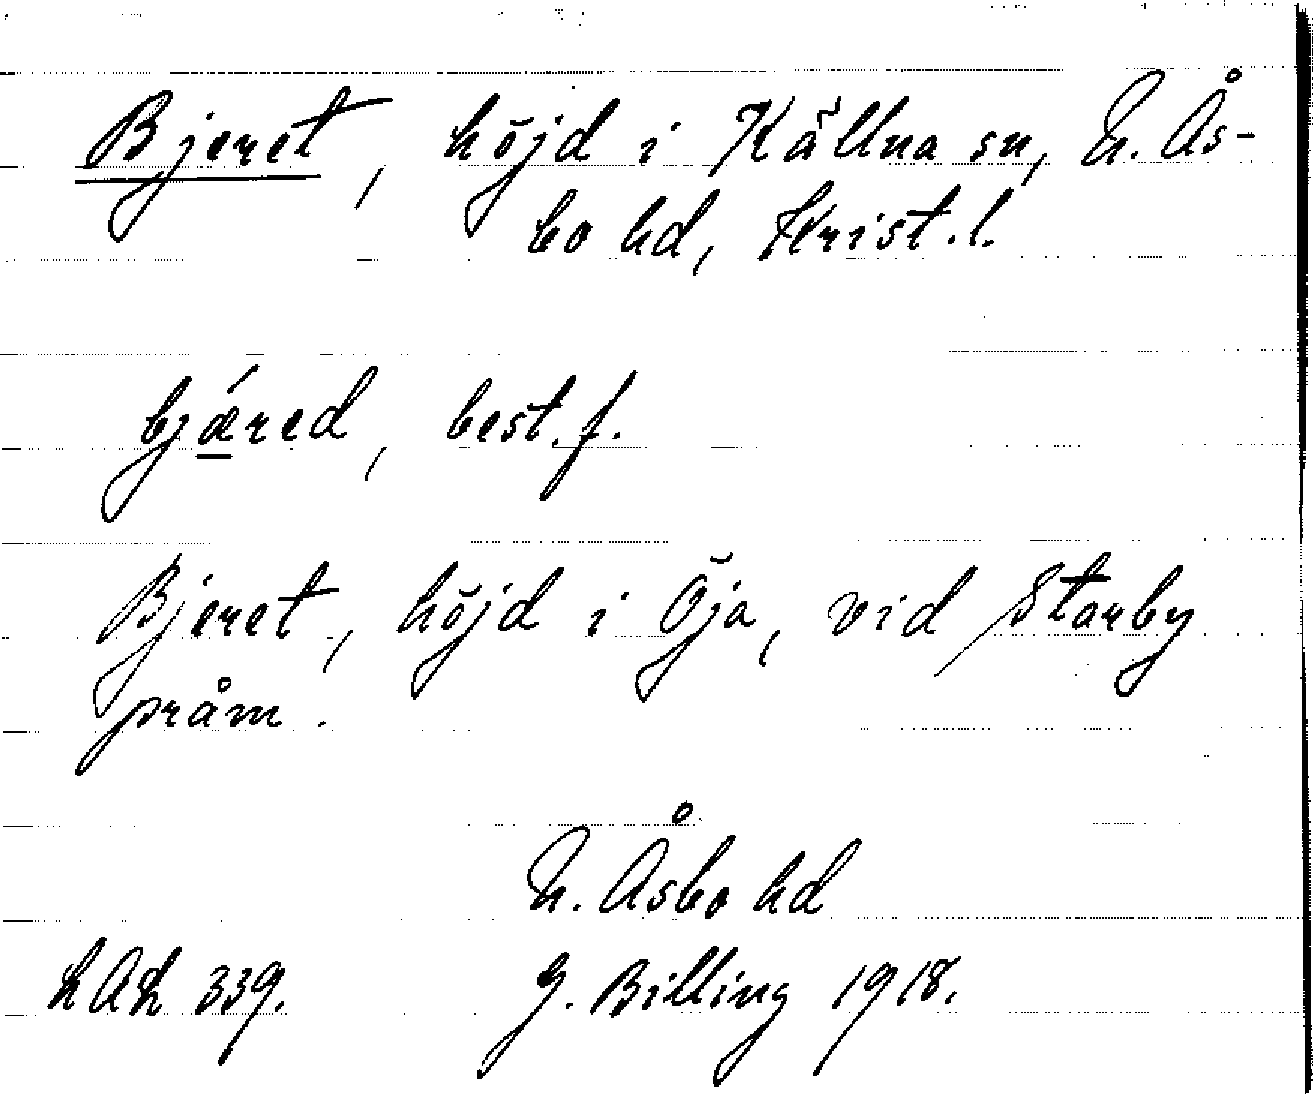 Bjeret, höjd i Källna sn, N. Ås-
bo hd, Krist. l.
bjǽred, best. f.
Bjeret, höjd i Öja, vid Starby
pråm.
N. Åsbo hd
LAL 339. G. Billing 1918.